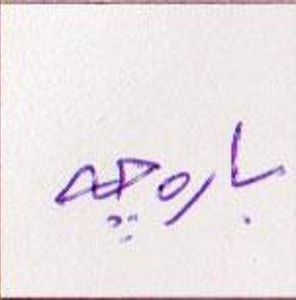 باروچه